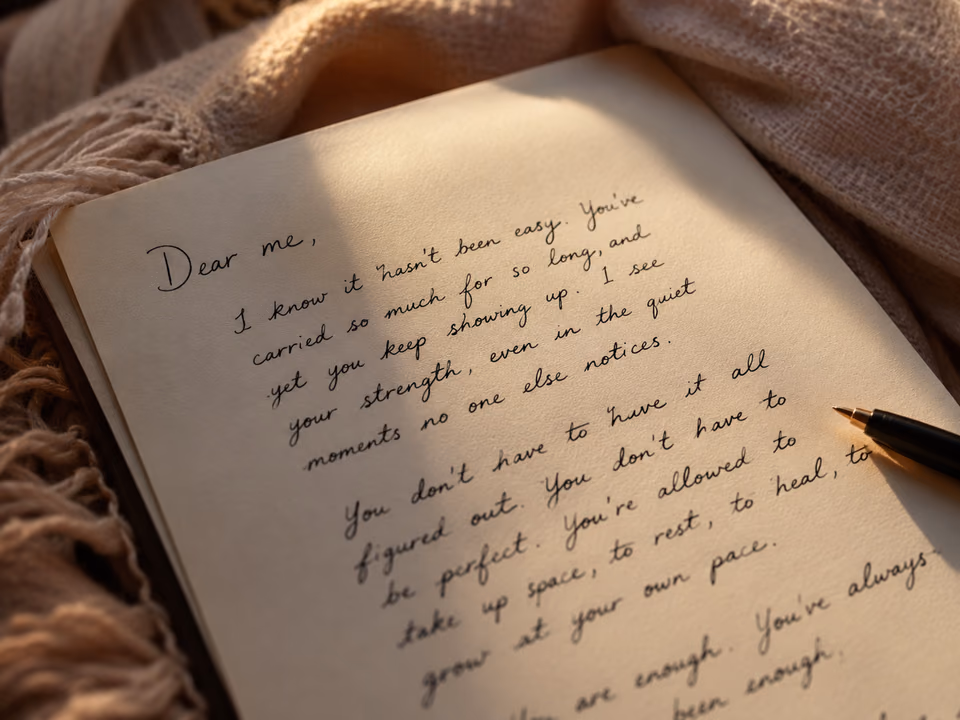 Dear me,
I know it hasn't been easy. You've
carried so much for so long, and
yet you keep showing up. I see
your strength, even in the quiet
moments no one else notices.
You don't have to have it all
figured out. You don't have to
be perfect. You're allowed to
take up space, to rest, to heal, to
grow at your own pace.
You are enough. You've always
been enough.